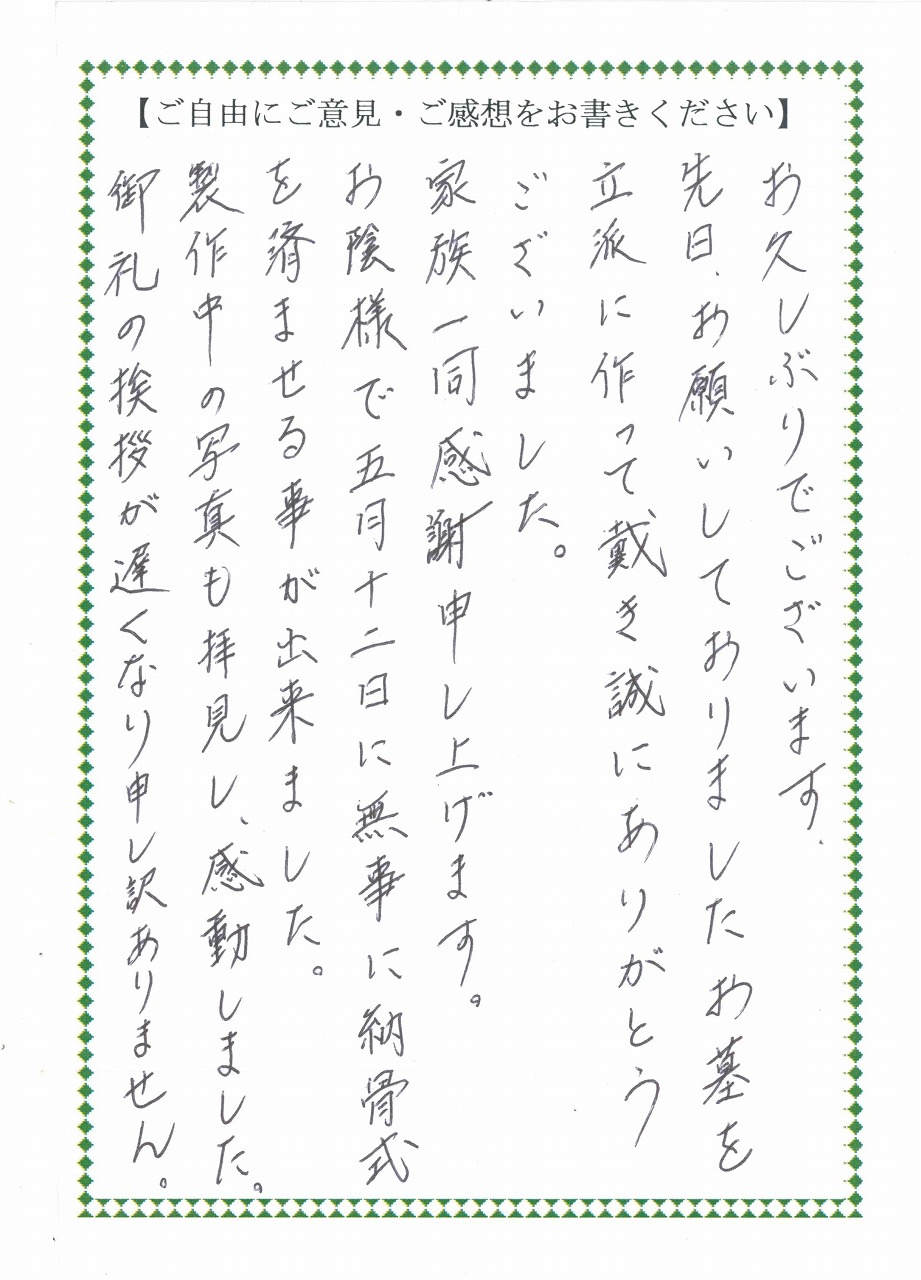 【ご自由にご意見・ご感想をお書きください】
お久しぶりでございます.
先日、お願いしておりましたお墓を
立派に作って戴き誠にありがとう
ございました。
家族一同感謝申し上げます。
お陰様で五月十二日に無事に納骨式
を済ませる事が出来ました。
製作中の写真も拝見し、感動しました。
御礼の挨拶が遅くなり申し訳ありません。